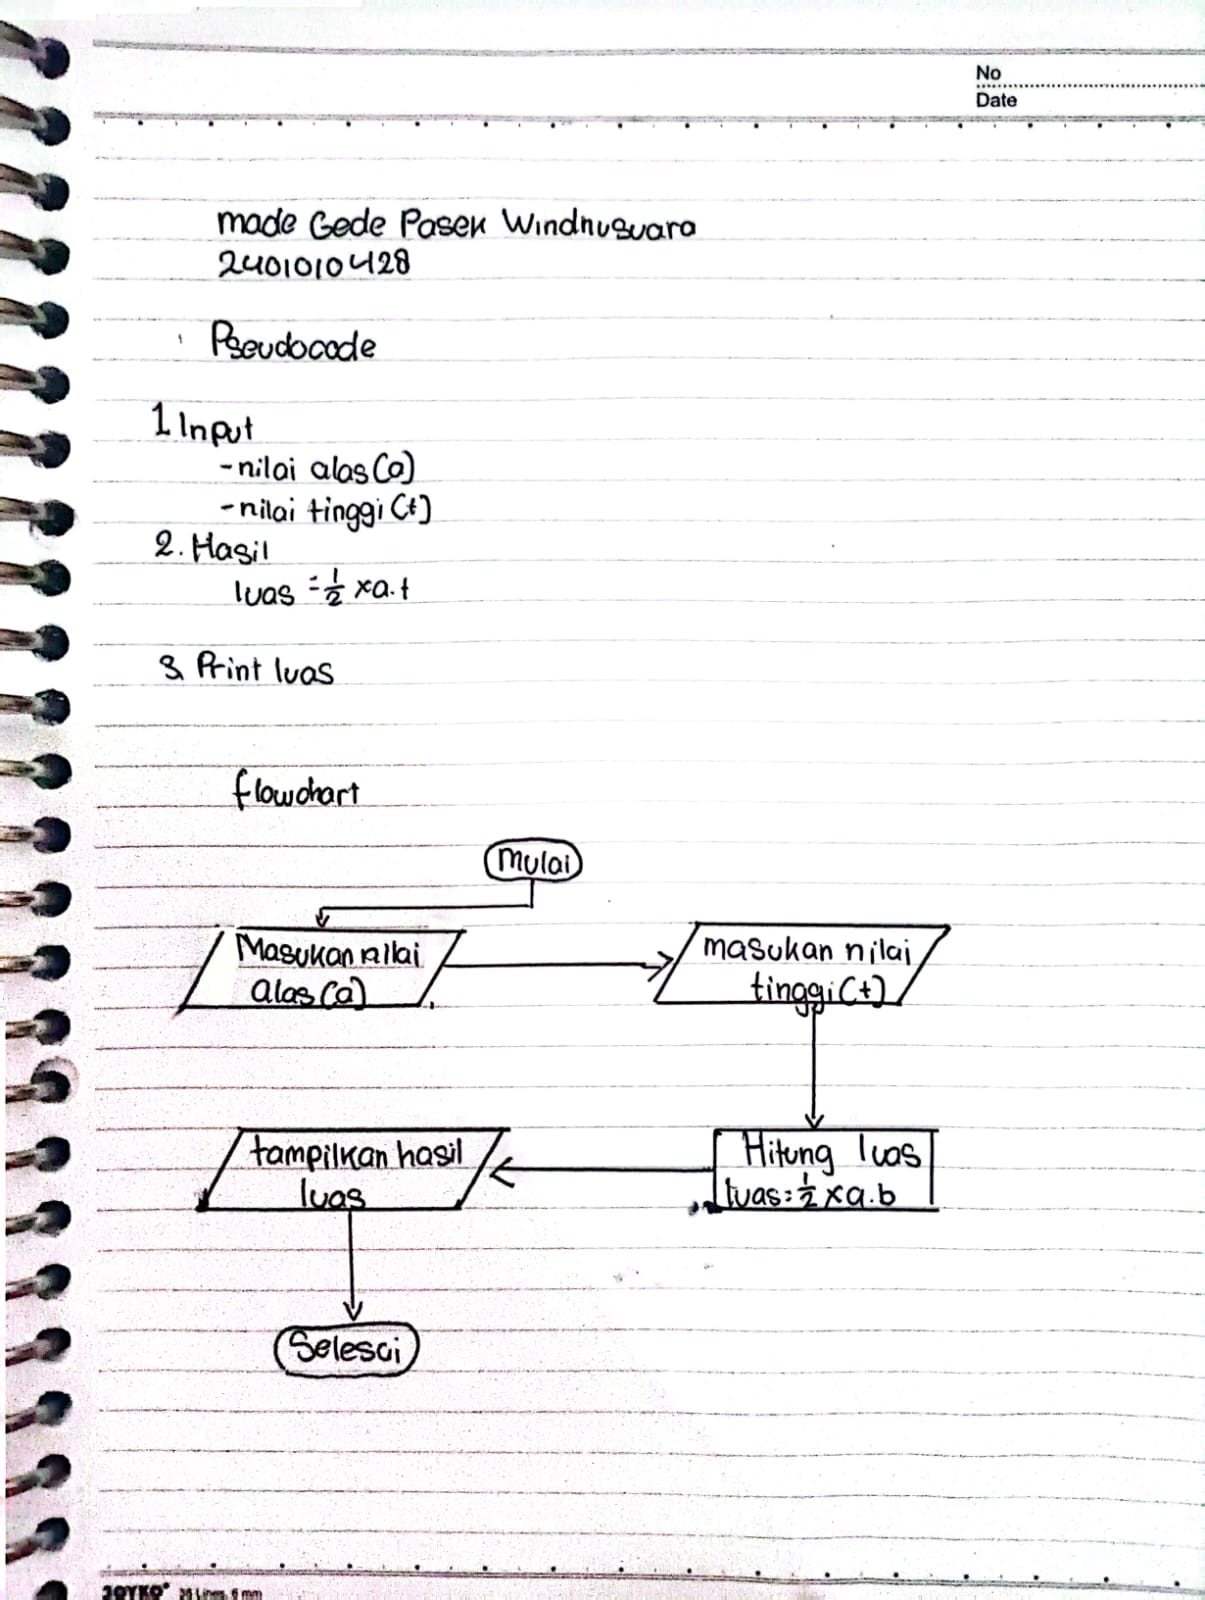 No
Date
made Gede Pasek Windhusuara
2401010428
Pseudocode
1 Input
-nilai alas (a)
-nilai tinggi (t)
2. Hasil
luas = 1/2 x a.t
3. Print luas
flowchart
Mulai
Masukan nilai
alas (a)
masukan nilai
tinggi (t)
tampilkan hasil
luas
Hitung luas
luas = 1/2 x a.b
Selesai
JOYKO 36 Lines, 6 mm